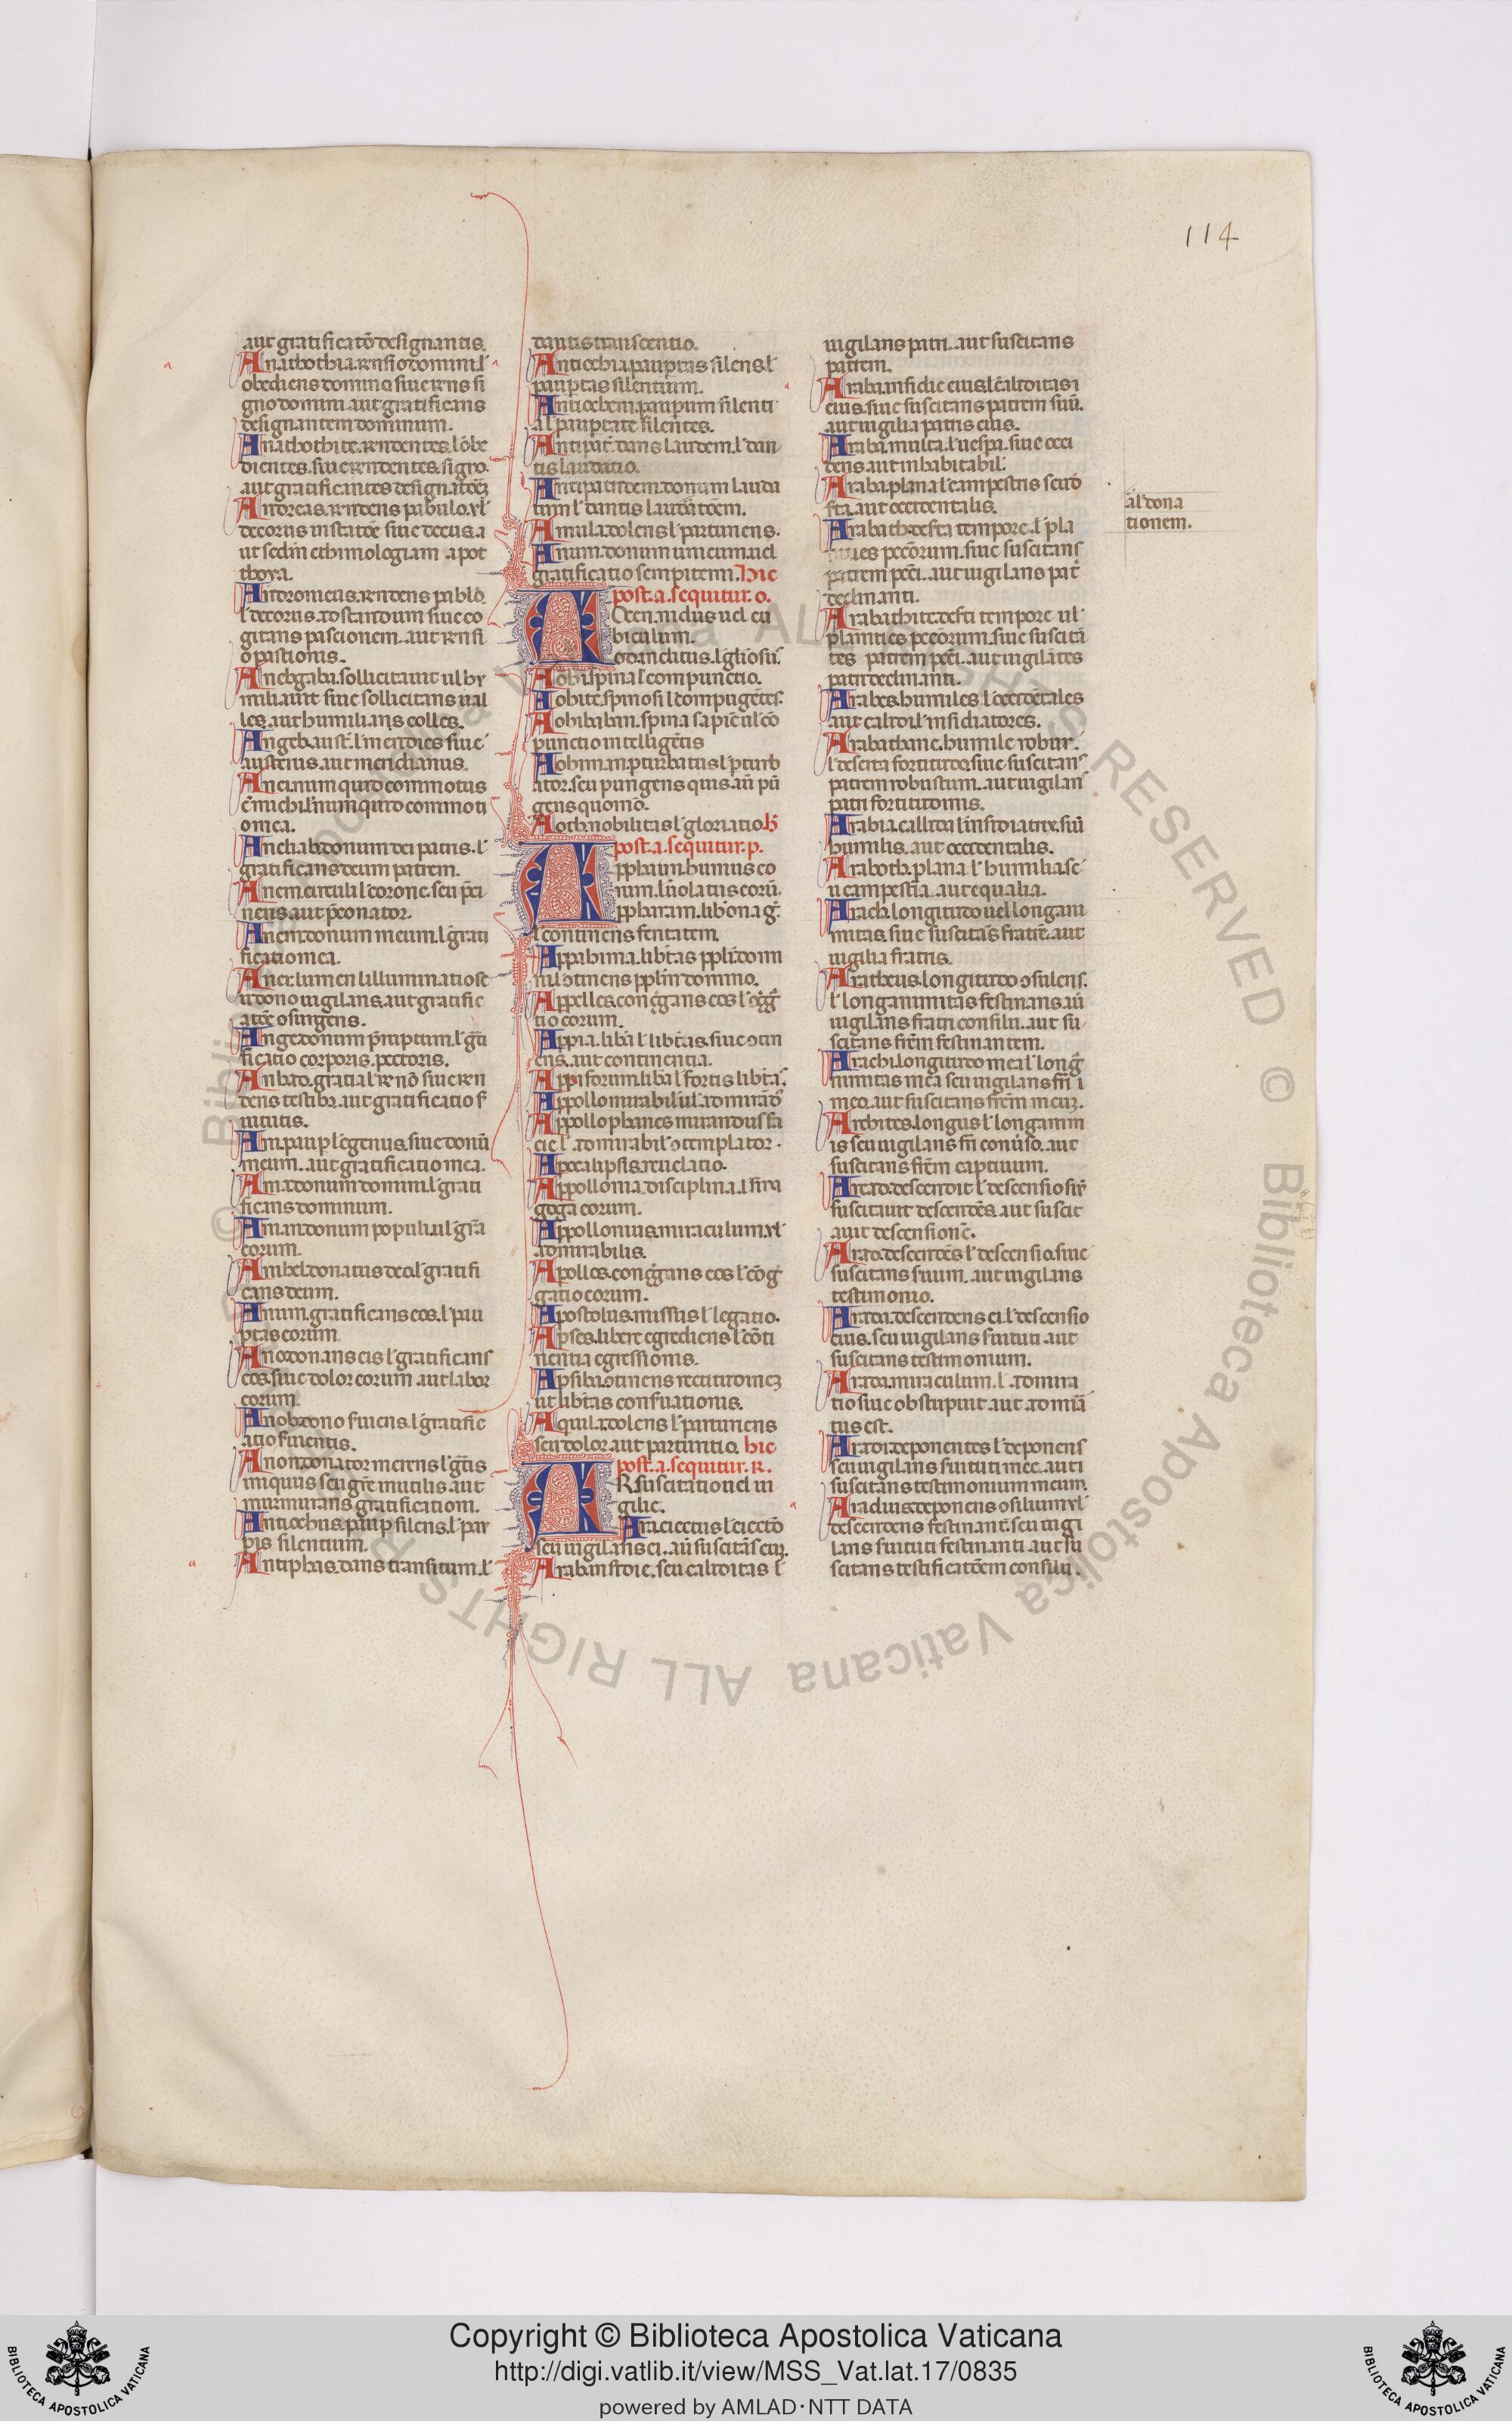 114
aut gratificatõ designantis.
Anathothia. rensio domini l'
obediens domino siue rens si
gno domini. aut gratificans
designantem dominum.
Anathothite. rendentes. l' obe
dientes. siue rendentes. signo.
aut gratificantes designatõez
Andreas. rendens pabulo. vl'
decorus in statõe siue decus. a
ut sedm ethimologiam a pot
thoya.
Andronicus. rendens pablo
l' decorus. ad standum siue co
gitans pascionem. aut rensi
o pastionis.
Anelgaba. sollicitauit ul hu
miliauit siue sollicitans ual
les. aut humilians colles.
Angeb. aust. l' meridies siue
austerus. aut meridianus.
Anei. num quid commotus
ẽ michi l' num quid commoti
o mea.
Aneliab. donum dei patris. l'
gratificans deum patrem.
Anem. circuli l' corone. seu p̃ci
nens. aut p̃conator.
Anem. donum meum. l' grati
ficatio mea.
Aner. lumen l' illuminatio se
u dono uigilans. aut gratific
atõe ɔsurgens.
Ange. donum p̃ruptum. l' gr̃ti
ficatio corporis. pectoris.
Aniad. gratia l' rensõ siue ren
dens testibz. aut gratificatio s'
uitutis.
Ani. paup l' egenus. siue donũ
meum. aut gratificatio mea.
Ania. donum domini. l' grati
ficans dominum.
Aniam. donum populi. ul' gr̃a
eorum.
Aniel. donatus deo l' gratifi
cans deum.
Anum. gratificans eos. l' pau
ptas eorum
Ano. donans eis l' gratificans
eos. siue dolor eorum aut labor
eorum
Anob. dono siuens. l' gratific
atio s'uientis.
Anon. donator merens l' gr̃tis
iniquus seu gr̃e inutilis aut
murmurans gratificationi.
Antiochus. paup silens. l' pau
pis silentium.
Antiphas. dans transitum. l'
dantis transcentio.
Antiochia. pauptas silens. l'
pauptas silentium.
Antiocheni. paupum silenti
a l' pauptate silentes.
Antipat. dans laudem. l' dan
tis laudatio.
Antipatridem. donum lauda
tum l' dantis laudatõem.
Amula. dolens l' parturiens.
Anum. donum unicum. uel
gratificatio sempiterni. Hic
post. a. sequitur. o.
Aoen. nidus uel cu
biculum.
Aod. inclitus. l' gliosus.
Aohi. spina l' compunctio.
Aohite. spinosi l' compugẽtes.
Aohibaban. spina sapiẽ ul cõ
punctio intelligẽtis
Aohim. in pturbatus l' pturb
ator. seu pungens quis. aũ pũ
gens quomõ.
Aoth. nobilitas l' gloriatio. h̃
post. a. sequitur. p.
Apphaim. humus eo
rum. l' uiolatus eorũ.
Appharam. lib'ona g̃.
l' continens feritatem.
Appabima. lib'tas ppli. domi
ni l' ɔtinens pplm domino.
Appelles. cong̃gans eos l' ɔg̃g̃
tio eorum.
Appia. lib'a l' lib'tas. siue ɔtin
ens. aut continentia.
Appiforum. lib'a l' fortis lib'tas.
Appollo. mirabil' ul' admirãd'
Appollophanes mirandus fa
cie l' admirabil' ɔtemplator.
Apocalipsis. reuelatio.
Appollonia. disciplina. l' sina
goga eorum.
Appollonius. miraculum. vl'
admirabilis.
Apolles. cong̃gans eos l' cõg̃
gatio eorum.
Apostolus. missus l' legatio.
Apses. libere egrediens l' cõti
nentia egressionis.
Apsiba. ɔtinens rectitudinez
ut lib'tas conseruationis.
Aquila. dolens l' parturiens
seu dolor. aut parturitio. hic
post. a. sequitur. R.
AR. suscitatio uel ui
gilie.
Ara. eiectus l' eiectõ
seu uigilans ei. aũ suscitãs eũ.
Arab. insidie. seu caliditas l'
uigilans patri. aut suscitans
patrem.
Araba. insidie eius. l' caliditas i
eius. siue suscitans patrem suũ.
aut uigilia patris eius.
Araba. multa. l' uespa. siue occi
dens. aut inhabitabil'.
Araba. plana l' campestris seu d'
s'ta. aut occidentalis.
Arabath. des'ta tempore. l' pla
nities peccõrum. siue suscitans
patrem peccĩ. aut uigilans pat'
declinanti.
Arabathite. des'ti tempore ul'
planities peccõrum. siue suscitã
tes patrem peccĩ. aut uigilãtes
patri declinanti.
Arabes. humiles l' occidẽtales
aut calidi. l' insidiatores.
Arabathane. humile robur.
l' deserta fortitudo. siue suscitans
patrem robustum. aut uigilans
patri fortitudinis.
Arabia. callida l' insidiatrix. siũ
humilis. aut occidentalis.
Araboth. plana l' humilia. se
u campestria. aut equalia.
Arach. longitudo uel longani
mitas. siue suscitãs fratrẽ. aut
uigilia fratris.
Aratheus. longitudo ɔsulens.
l' longanimitas festinans. aũ
uigilans fratri consilii. aut su
scitans frẽm festinantem.
Arachi. longitudo mea l' long̃
nimitas mea seu uigilans fr̃i i
meo. aut suscitans frẽm meuz.
Arachites. longus l' longanim
is seu uigilans fr̃i conũso. aut
suscitans frẽm captiuum.
Arad. descendit l' descensio siũ
suscitauit descendẽs. aut suscit
auit descensionẽ.
Arad. descendẽs l' descensio. siue
suscitans suum. aut uigilans
testimonio.
Arada. descendens ei. l' descensio
eius. seu uigilans s'uituti aut
suscitans testimonium.
Arada. miraculum. l' admira
tio siue obstupuit. aut admirã
tus est.
Aradi. deponentes l' deponens
seu uigilans s'uituti mee. aut i
suscitans testimonium meum.
Aradius. deponens ɔsilium vl'
descendens festinant. seu uigi
lans s'uituti festinanti. aut su
scitans testificatõem consilii.
al' dona
tionem.
Copyright © Biblioteca Apostolica Vaticana
http://digi.vatlib.it/view/MSS_Vat.lat.17/0835
powered by AMLAD·NTT DATA
BIBLIOTECA APOSTOLICA VATICANA
BIBLIOTECA APOSTOLICA VATICANA